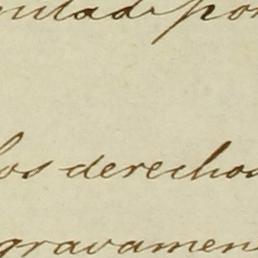 por
los derechos
gravamen